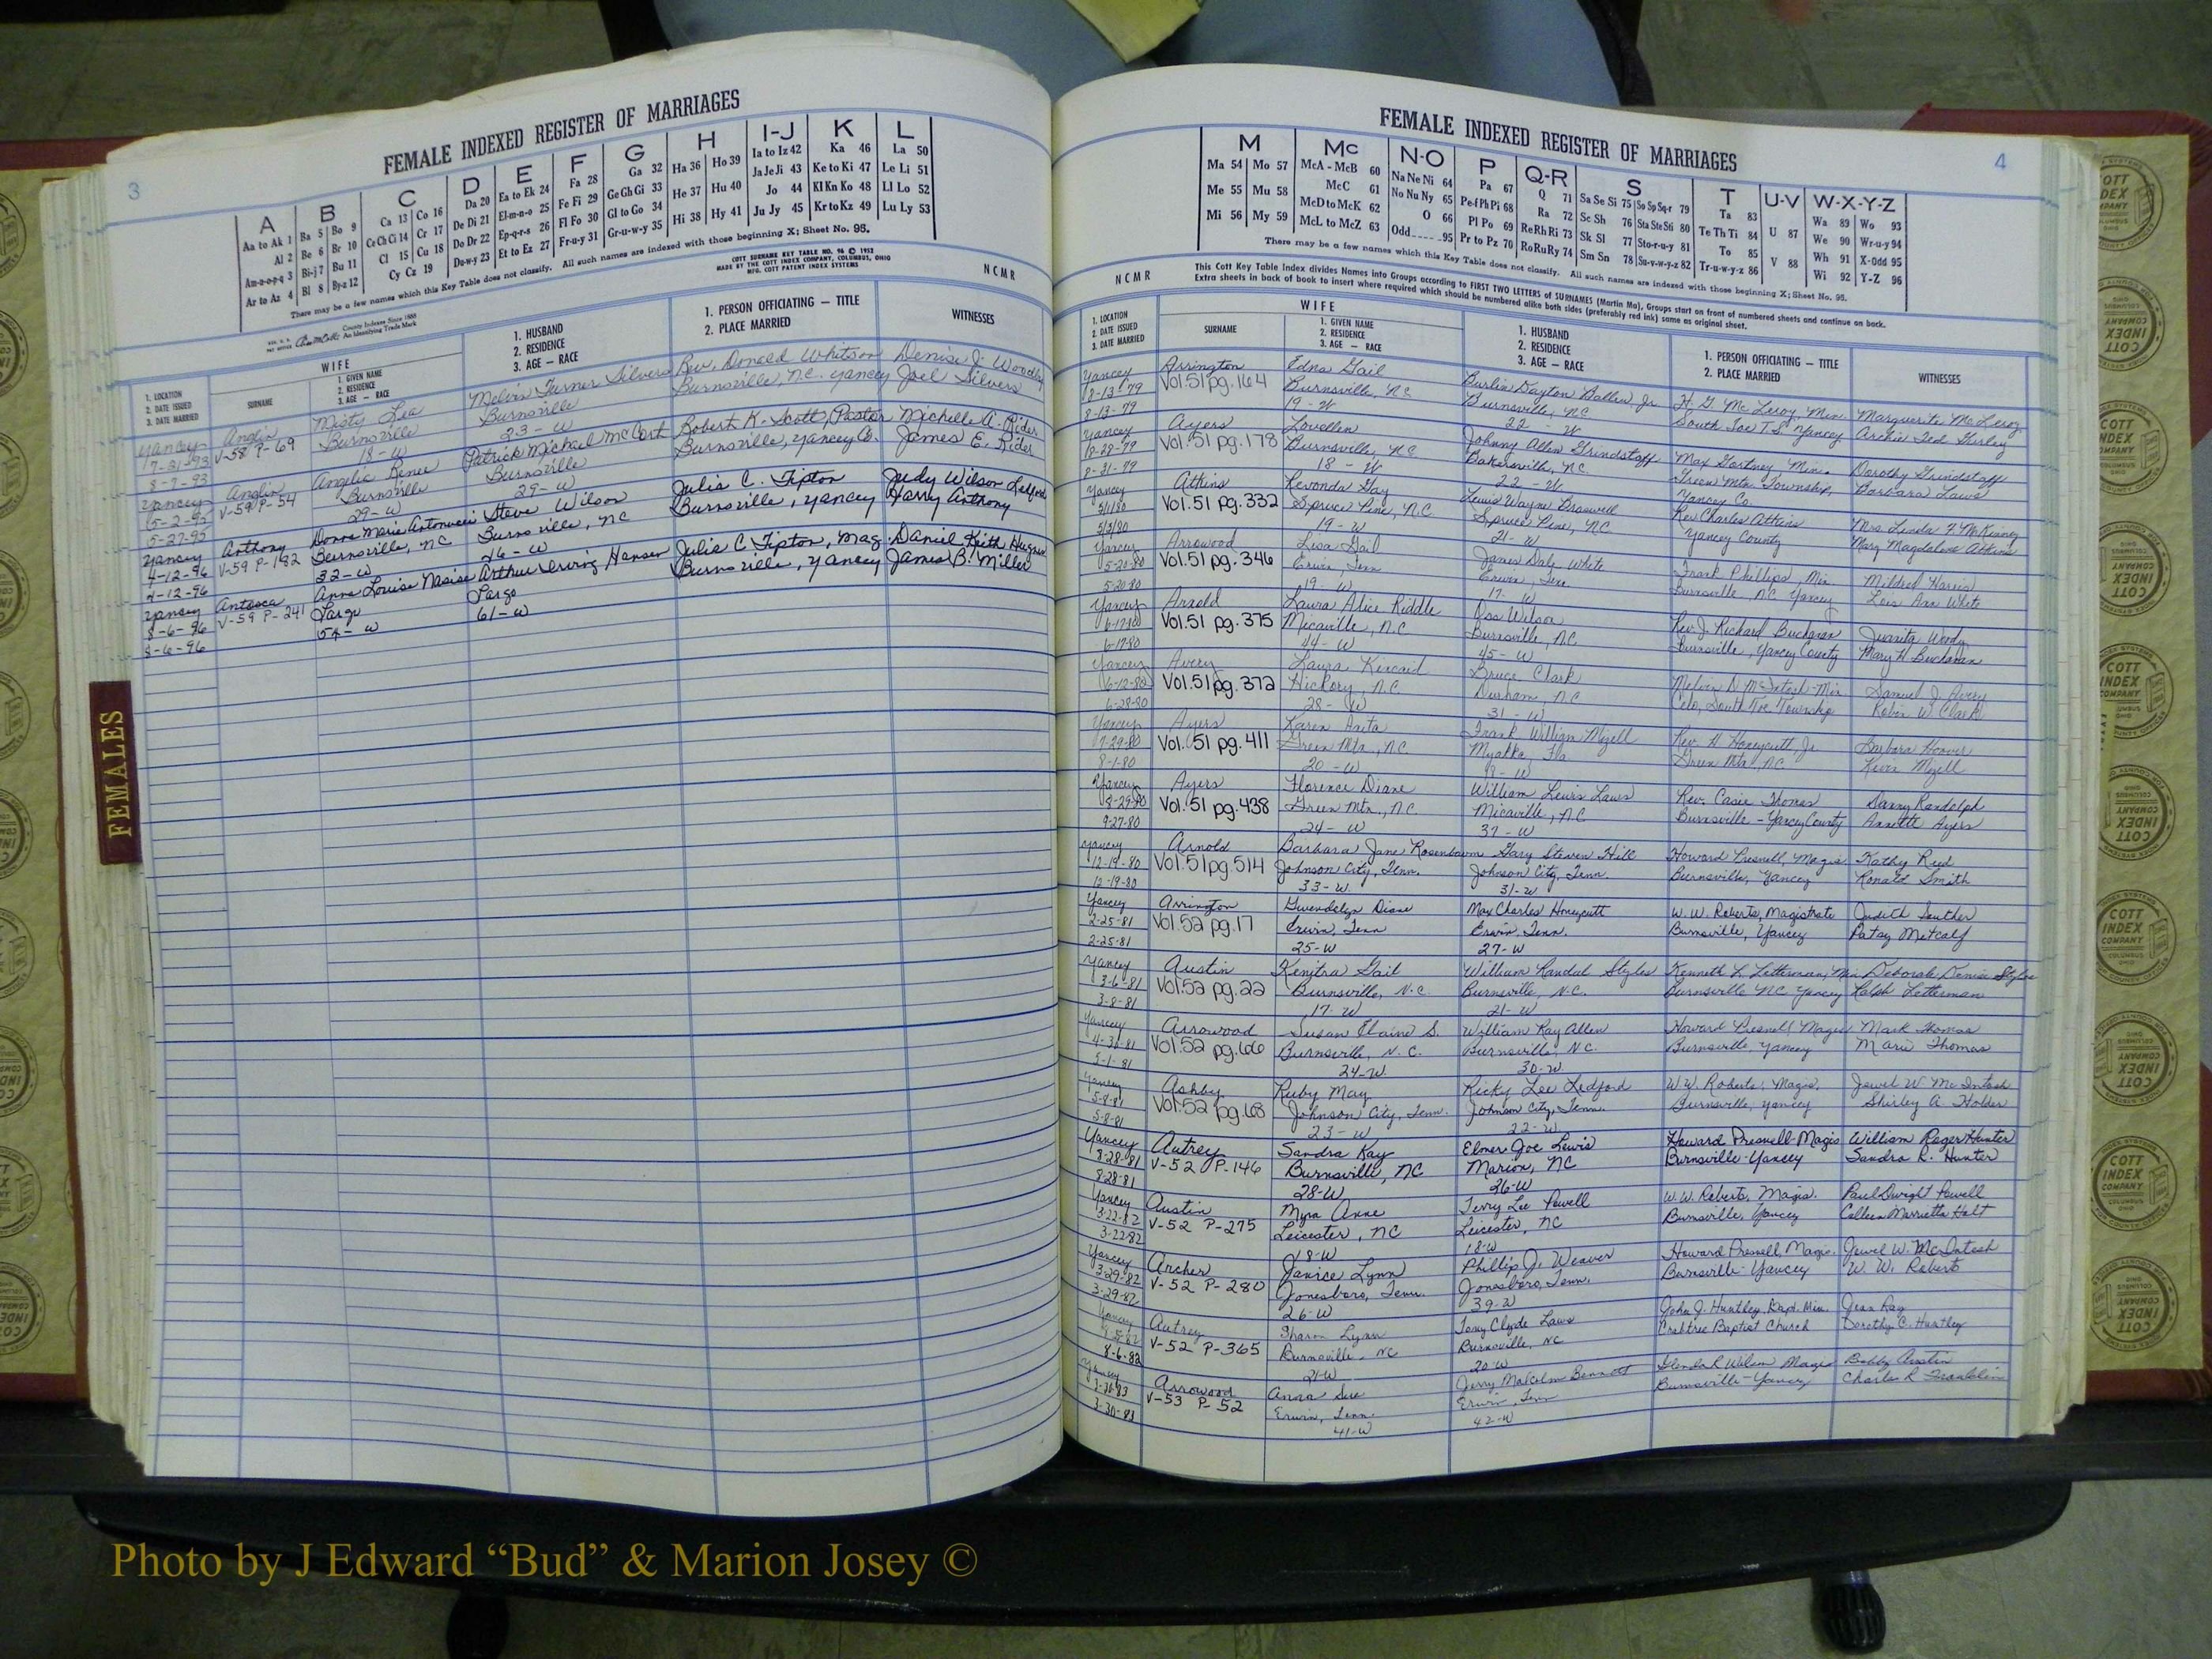 3
FEMALE INDEXED REGISTER OF MARRIAGES
A B C D E F G H I-J K L
Aa to Ak 1 Ba 5 Bo 9 Ca 13 Co 16 Da 20 Ea to Ek 24 Fa 28 Ga 32 Ha 36 Ho 39 Ia to Iz 42 Ka 46 La 50
Al 2 Be 6 Br 10 Ce Ch Ci 14 Cr 17 De Di 21 El-m-n-o 25 Fe Fi 29 Ge Gh Gi 33 He 37 Hu 40 Ja Je Ji 43 Ke to Ki 47 Le Li 51
Am-n-o-p-q 3 Bi-j 7 Bu 11 Cl 15 Cu 18 Do Dr 22 Ep-q-r-s 26 Fl Fo 30 Gl to Go 34 Hi 38 Hy 41 Jo 44 Kl Kn Ko 48 Ll Lo 52
Ar to Az 4 Bl 8 By-z 12 Cy Cz 19 Du-w-y 23 Et to Ez 27 Fr-u-y 31 Gr-u-w-y 35 Ju Jy 45 Kr to Kz 49 Lu Ly 53
There may be a few names which this Key Table does not classify. All such names are indexed with those beginning X; Sheet No. 95.
County Indexes Since 1888
An Identifying Trade Mark
COTT SURNAME KEY TABLE NO. 96 © 1952
MADE BY THE COTT INDEX COMPANY, COLUMBUS, OHIO
MFG. COTT PATENT INDEX SYSTEMS
NCMR
1. LOCATION
2. DATE ISSUED
3. DATE MARRIED
WIFE
SURNAME
1. GIVEN NAME
2. RESIDENCE
3. AGE — RACE
1. HUSBAND
2. RESIDENCE
3. AGE — RACE
1. PERSON OFFICIATING — TITLE
2. PLACE MARRIED
WITNESSES
Yancey Anglin Misty Lea Melvin Turner Silvers Rev. Donald Whitson Denise J. Woodby
7-31-93 V-58 P-69 Burnsville Burnsville Burnsville, N.C. Yancey Joel Silvers
8-7-93 18-W 23-W
Yancey Anglin Angelia Renee Patrick Michael McCort Robert K. Scott, Pastor Michelle A. Rider
5-2-95 V-59 P-54 Burnsville Burnsville Burnsville, Yancey Co. James E. Rider
5-27-95 29-W 29-W
Yancey Anthony Donna Marie Antonucci Steve Wilson Julia C. Tipton Judy Wilson Ledford
4-12-96 V-59 P-182 Burnsville, NC Burnsville, NC Burnsville, Yancey Harry Anthony
4-12-96 32-W 26-W
Yancey Antasca Anna Louise Arthur Irving Hansen Julia C. Tipton, Mag. Daniel Keith Hughes
8-6-96 V-59 P-241 Largo Largo Burnsville, Yancey James B. Miller
8-6-96 54-W 61-W
FEMALES
4
FEMALE INDEXED REGISTER OF MARRIAGES
M Mc N-O P Q-R S T U-V W-X-Y-Z
Ma 54 Mo 57 McA - McB 60 Na Ne Ni 64 Pa 67 Q 71 Sa Se Si 75 So Sp Sq-r 79 Ta 83 U 87 Wa 89 Wo 93
Me 55 Mu 58 McC 61 No Nu Ny 65 Pe-f Ph Pi 68 Ra 72 Sc Sh 76 Sta Ste Sti 80 Te Th Ti 84 V 88 We 90 Wr-u-y 94
Mi 56 My 59 McD to McK 62 O 66 Pl Po 69 Re Rh Ri 73 Sk Sl 77 Sto-r-u-y 81 To 85 Wh 91 X-Odd 95
McL to McZ 63 Odd 95 Pr to Pz 70 Ro Ru Ry 74 Sm Sn 78 Su-v-w-y-z 82 Tr-u-w-y-z 86 Wi 92 Y-Z 96
There may be a few names which this Key Table does not classify. All such names are indexed with those beginning X; Sheet No. 95.
NCMR
This Cott Key Table Index divides Names into Groups according to FIRST TWO LETTERS of SURNAMES (Martin Ma). Groups start on front of numbered sheets and continue on back.
Extra sheets in back of book to insert where required which should be numbered alike both sides (preferably red ink) same as original sheet.
1. LOCATION
2. DATE ISSUED
3. DATE MARRIED
WIFE
SURNAME
1. GIVEN NAME
2. RESIDENCE
3. AGE — RACE
1. HUSBAND
2. RESIDENCE
3. AGE — RACE
1. PERSON OFFICIATING — TITLE
2. PLACE MARRIED
WITNESSES
Yancey Arrington Edna Gail Burlin Dayton Ballew Jr. H. G. McLeroy, Min. Marguerite McLeroy
8-13-79 Vol. 51 pg. 164 Burnsville, NC Burnsville, NC South Toe T.S. Yancey Archie Ted Gurley
8-13-79 19-W 22-W
Yancey Ayers Lovellen Johnny Allen Grindstaff Max Gortney, Min. Dorothy Grindstaff
8-28-79 Vol. 51 pg. 178 Burnsville, NC Bakersville, NC Green Mtn. Township, Barbara Laws
8-31-79 18-W 22-W Yancey Co
Yancey Atkins Revonda Gay Lewis Wayne Braswell Rev. Charles Atkins Mrs. Linda F. McKinney
5/1/80 Vol. 51 pg. 332 Spruce Pine, N.C. Spruce Pine, NC Yancey County Mary Magdalene Atkins
5/3/80 19-W 21-W
Yancey Arrowood Lisa Gail James Daly White Frank Phillips, Min Mildred Harris
5-20-80 Vol. 51 pg. 346 Erwin, Tenn Erwin, Tenn Burnsville, NC Yancey Lois Ann White
5-20-80 19-W 17-W
Yancey Arnold Laura Alice Riddle Oss Wilson Rev. J. Richard Buchanan Juanita Woody
6-17-80 Vol. 51 pg. 375 Micaville, N.C Burnsville, NC Burnsville, Yancey County Mary H. Buchanan
6-17-80 44-W 45-W
Yancey Avery Laura Kincaid Bruce Clark Melvin D. McIntosh-Min Samuel J. Avery
6-12-80 Vol. 51 pg. 372 Hickory, N.C Durham, N.C Celo, South Toe Township Robin W. Clark
6-28-80 28-W 31-W
Yancey Ayers Karen Anita Frank William Mizell Rev. H. Honeycutt, Jr. Barbara Hoover
7-29-80 Vol. 51 pg. 411 Green Mtn., NC Myakka, Fla Green Mtn., NC Kevin Mizell
8-1-80 20-W 19-W
Yancey Ayers Florence Diane William Lewis Laws Rev. Casie Thomas Danny Randolph
8-29-80 Vol. 51 pg. 438 Green Mtn., N.C. Micaville, N.C Burnsville - Yancey County Annette Ayers
9-27-80 24-W 37-W
Yancey Arnold Barbara Jane Rosenbaum Gary Steven Hill Howard Presnell, Magis. Kathy Reed
12-19-80 Vol. 51 pg. 514 Johnson City, Tenn. Johnson City, Tenn. Burnsville, Yancey Ronald Smith
12-19-80 33-W. 31-W
Yancey Arrington Gwendolyn Diane Max Charles Honeycutt W. W. Roberts, Magistrate Judith Souther
2-25-81 Vol. 52 pg. 17 Erwin, Tenn Erwin, Tenn. Burnsville, Yancey Patsy Metcalf
2-25-81 25-W 27-W
Yancey Austin Kenitra Gail William Randal Styles Kenneth L. Letterman, Min Deborah Denise Styles
3-6-81 Vol. 52 pg. 22 Burnsville, N.C. Burnsville, N.C. Burnsville NC Yancey Ralph Letterman
3-8-81 17-W 21-W
Yancey Arrowood Susan Elaine S. William Ray Allen Howard Presnell Magis Mark Thomas
4-30-81 Vol. 52 pg. 66 Burnsville, N.C. Burnsville, NC. Burnsville, Yancey Marie Thomas
5-1-81 24-W. 30-W.
Yancey Ashby Ruby May Ricky Lee Ledford W. W. Roberts, Magis, Jewel W McIntosh
5-8-81 Vol. 52 pg. 68 Johnson City, Tenn. Johnson City, Tenn. Burnsville, Yancey Shirley A Holder
5-8-81 23-W 22-W.
Yancey Autrey Sandra Kay Elmer Joe Lewis Howard Presnell-Magis William Roger Hunter
8-28-81 V-52 P-146 Burnsville, NC Marion, NC Burnsville-Yancey Sandra R. Hunter
8-28-81 28-W 26-W
Yancey Austin Myra Anne Terry Lee Powell W. W. Roberts, Magis. Paul Dwight Powell
3-22-82 V-52 P-275 Leicester, NC Leicester, NC Burnsville, Yancey Colleen Marrietta Holt
3-22-82 18-W 18-W
Yancey Archer Janice Lynn Phillip J. Weaver Howard Presnell, Magis. Jewel W. McIntosh
3-29-82 V-52 P-280 Jonesboro, Tenn. Jonesboro, Tenn. Burnsville-Yancey W. W. Roberts
3-29-82 26-W 39-W
Yancey Autrey Sharon Lynn Tony Clyde Laws John J. Huntley, Bapt. Min. Jean Ray
V-52 P-365 Burnsville, NC Burnsville, NC Crabtree Baptist Church Dorothy C. Huntley
8-6-82 21-W 20-W
Yancey Arrowood Anna Sue Jerry Malcolm Bennett Glenda R Wilson Magis Bobby Austin
3-30-83 V-53 P-52 Erwin, Tenn. Erwin, Tenn Burnsville-Yancey Charles R Franklin
3-30-83 41-W 42-W
COTT INDEX COMPANY COLUMBUS OHIO
Photo by J Edward “Bud” & Marion Josey ©